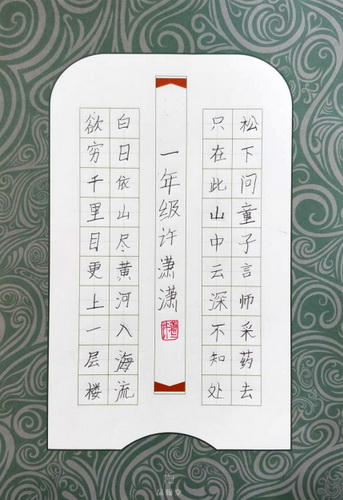 松下问童子言师采药去
只在此山中云深不知处
一年级许潇潇
白日依山尽黄河入海流
欲穷千里目更上一层楼